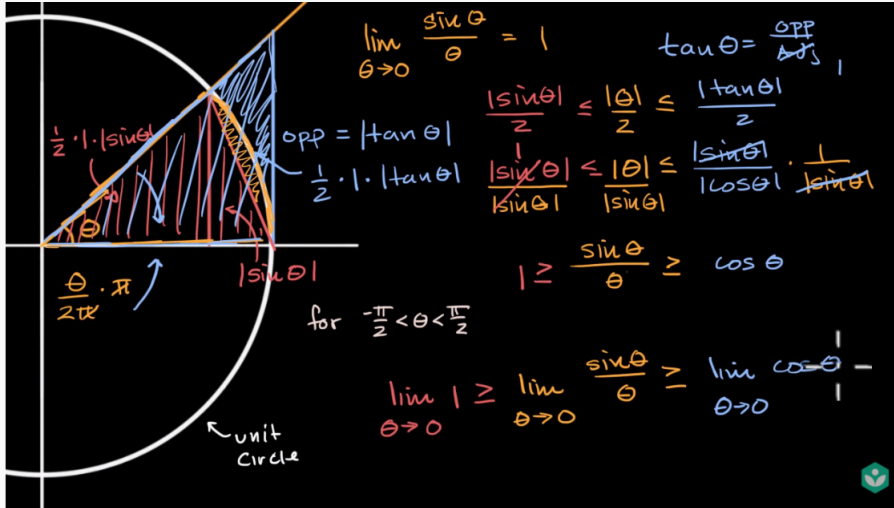 lim θ→0 sin θ / θ = 1
tan θ = opp / adj 1
1/2 · 1 · |sin θ|
opp = |tan θ|
1/2 · 1 · |tan θ|
|sin θ| / 2 ≤ |θ| / 2 ≤ |tan θ| / 2
1 |sin θ| / |sin θ| ≤ |θ| / |sin θ| ≤ |sin θ| / |cos θ| · 1 / |sin θ|
θ
θ / 2π · π
|sin θ|
1 ≥ sin θ / θ ≥ cos θ
for -π/2 < θ < π/2
lim θ→0 1 ≥ lim θ→0 sin θ / θ ≥ lim θ→0 cos θ
unit
circle